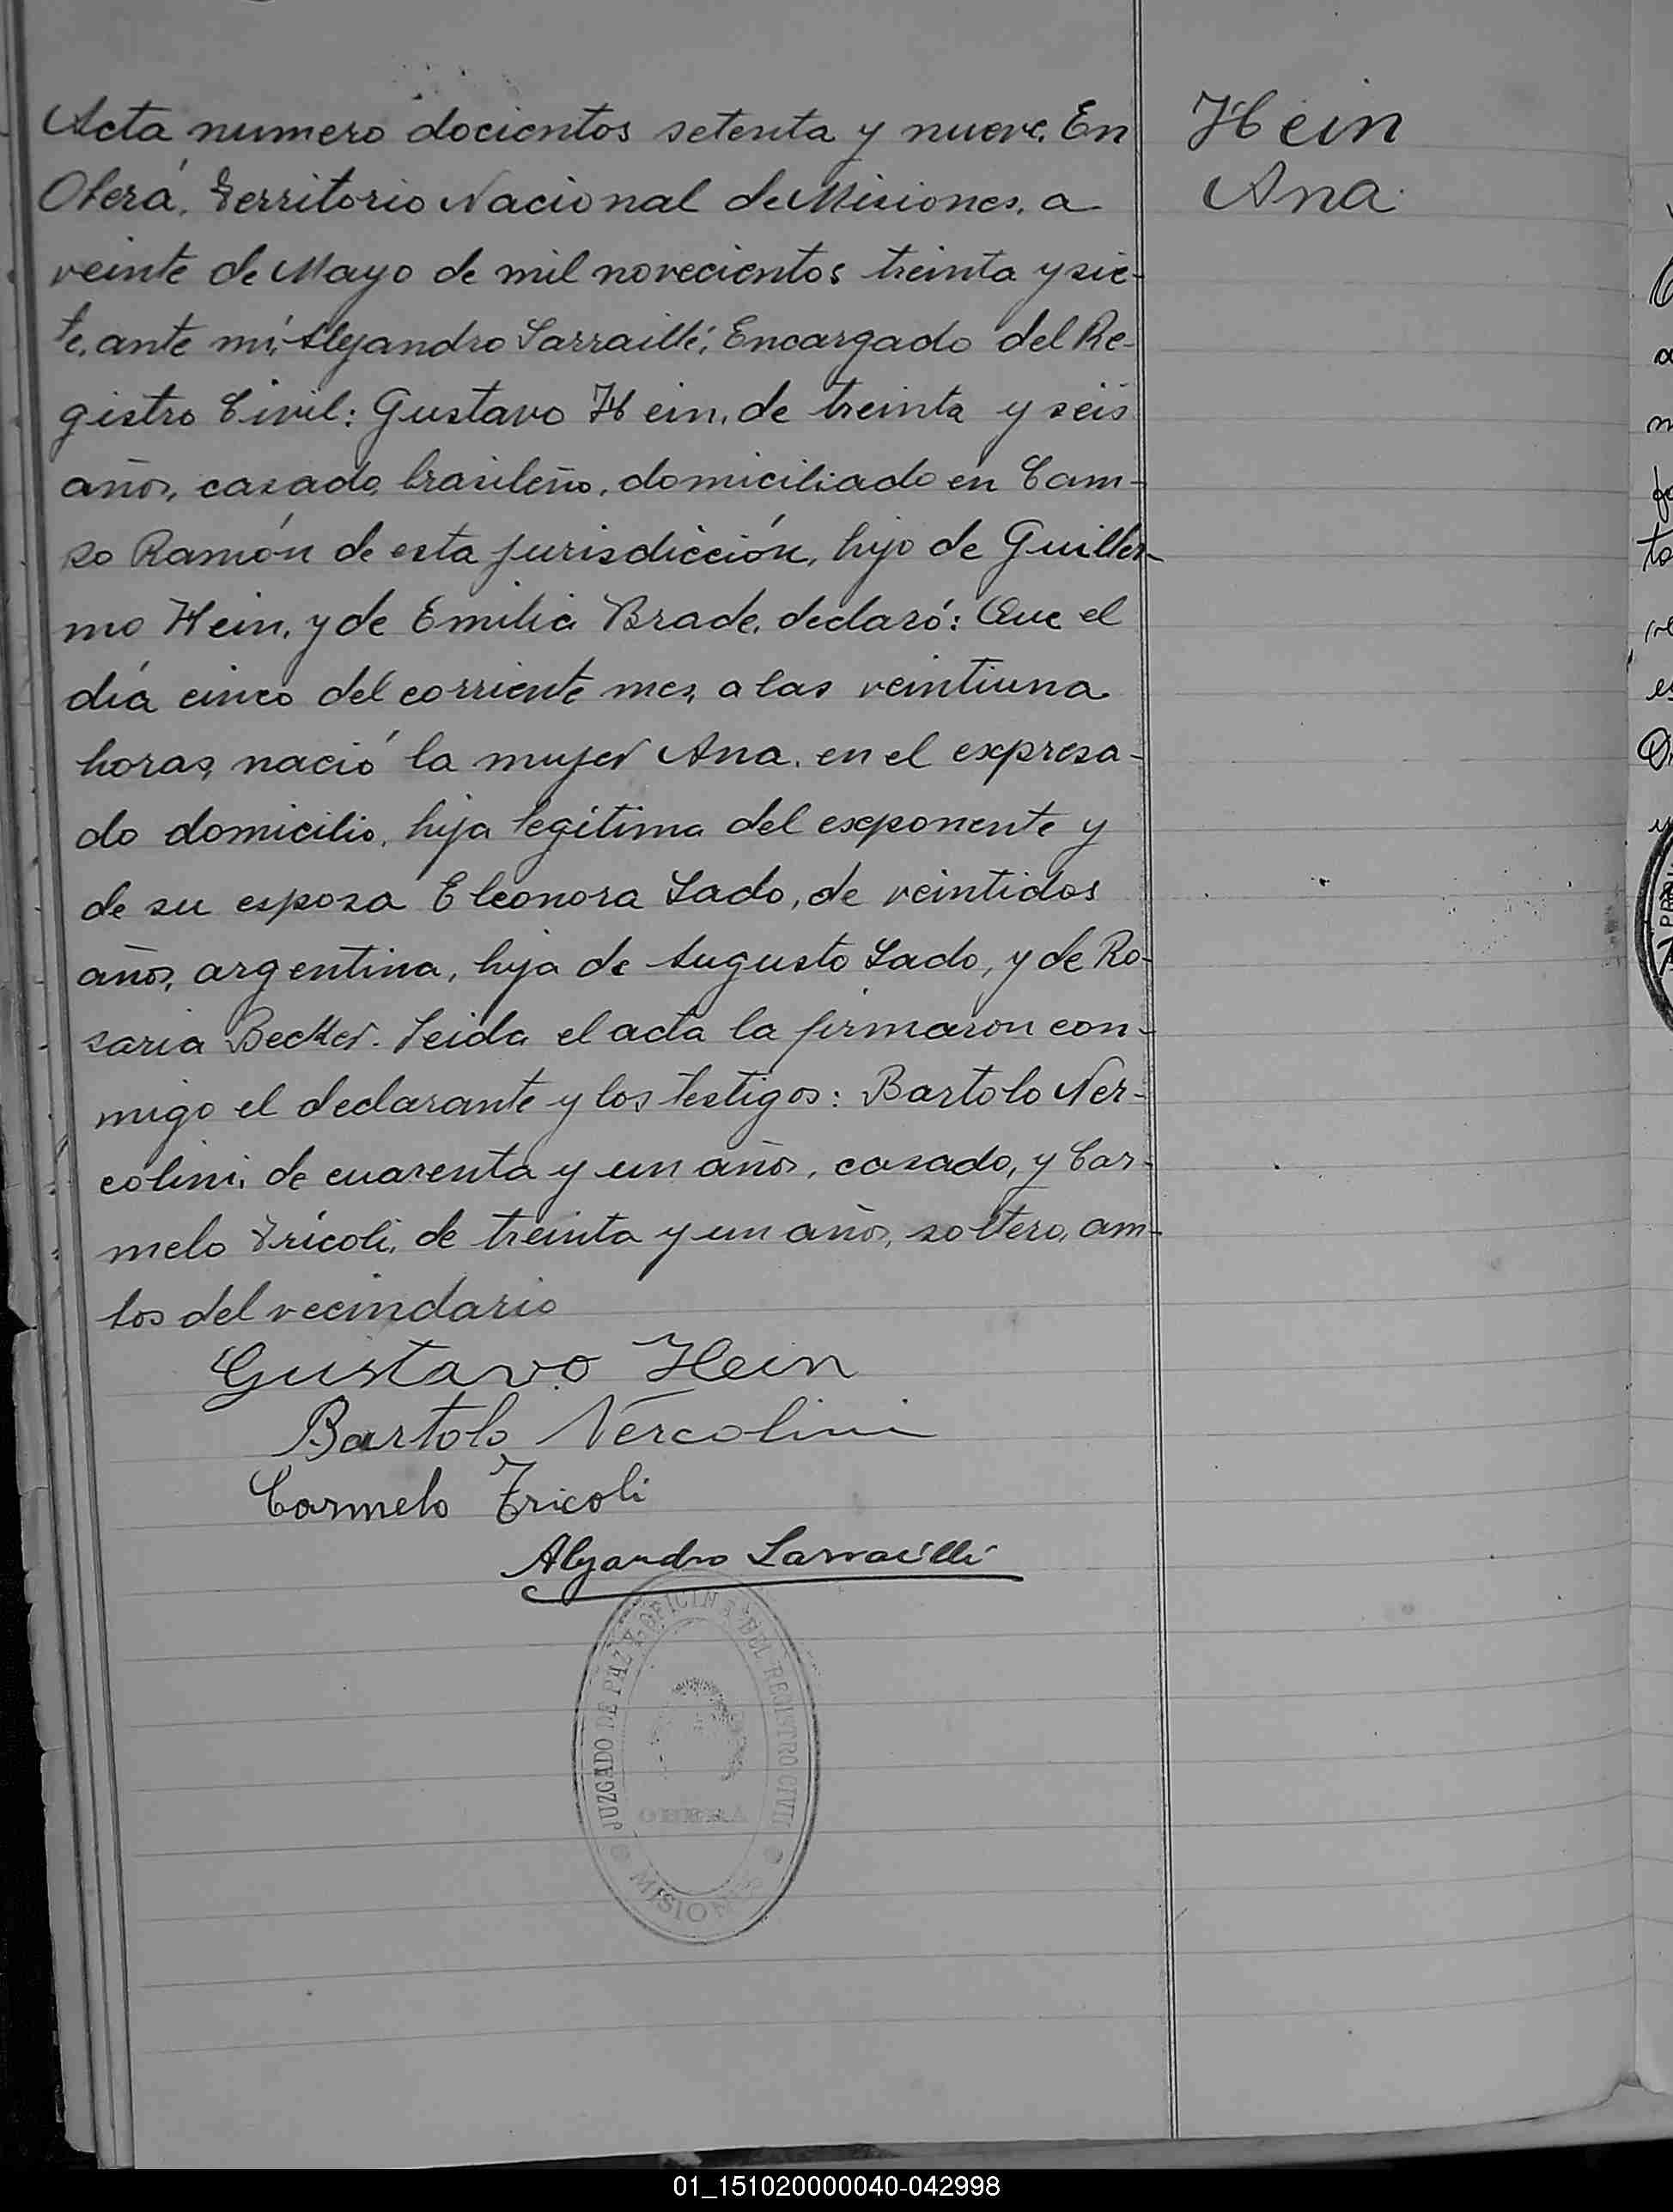 Acta numero docientos setenta y nueve. En
Oberá, Territorio Nacional de Misiones, a
veinte de Mayo de mil novecientos treinta y sie-
te, ante mí, Alejandro Larraillé, Encargado del Re-
gistro Civil: Gustavo Hein, de treinta y seis
años, casado, brasileño, domiciliado en Cam-
po Ramón de esta jurisdicción, hijo de Guiller-
mo Hein, y de Emilia Brade, declaró: Que el
día cinco del corriente mes, a las veintiuna
horas, nació la mujer Ana, en el expresa-
do domicilio, hija legítima del exponente y
de su esposa Eleonora Lado, de veintidos
años, argentina, hija de Augusto Lado, y de Ro-
saria Becker. Leida el acta la firmaron con-
migo el declarante y los testigos: Bartolo Ner-
colini, de cuarenta y un años, casado, y Car-
melo Trícoli, de treinta y un años, soltero, am-
bos del vecindario
Gustavo Hein
Bartolo Nercolini
Carmelo Tricoli
Alejandro Larraillé
JUZGADO DE PAZ Y OFICINA DEL REGISTRO CIVIL
OBERÁ
MISIONES
Hein
Ana
01_151020000040-042998